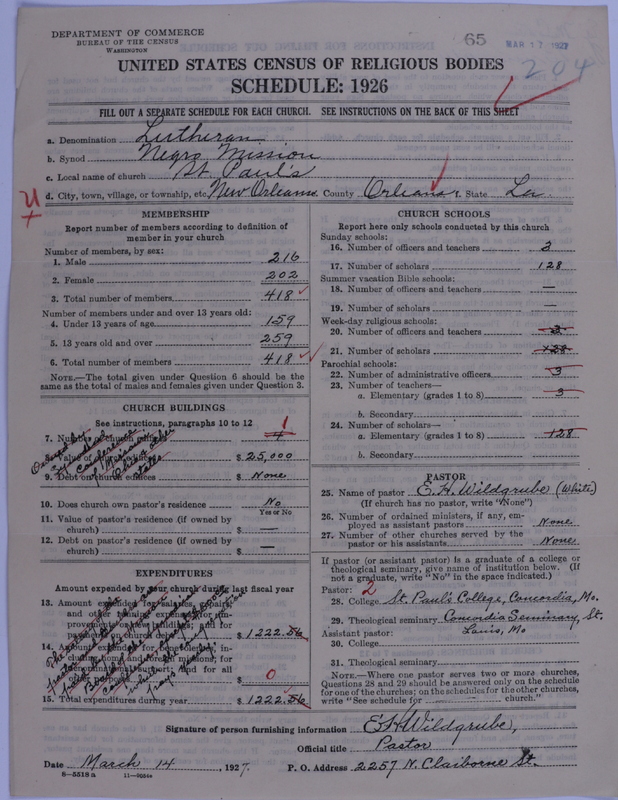 DEPARTMENT OF COMMERCE
BUREAU OF THE CENSUS
WASHINGTON
65
MAR 17 1927
204
UNITED STATES CENSUS OF RELIGIOUS BODIES
SCHEDULE: 1926
FILL OUT A SEPARATE SCHEDULE FOR EACH CHURCH. SEE INSTRUCTIONS ON THE BACK OF THIS SHEET
a. Denomination Lutheran
b. Synod Negro Mission
c. Local name of church St. Paul's
d. City, town, village, or township, etc. New Orleans County Orleans f. State La.
MEMBERSHIP
Report number of members according to definition of
member in your church
Number of members, by sex:
1. Male 216
2. Female 202
3. Total number of members 418
Number of members under and over 13 years old:
4. Under 13 years of age 159
5. 13 years old and over 259
6. Total number of members 418
NOTE.—The total given under Question 6 should be the
same as the total of males and females given under Question 3.
CHURCH BUILDINGS
See instructions, paragraphs 10 to 12
7. Number of church 1
8. Value of church $ 25,000
9. Debt on church edifices $ None
10. Does church own pastor's residence No
Yes or No
11. Value of pastor's residence (if owned by
church) $ —
12. Debt on pastor's residence (if owned by
church) $ —
EXPENDITURES
Amount expended by your church during last fiscal year
13. Amount expended for salaries, repairs,
$ 1222.56
14. Amount expended for benevolences, in-
$ 0
15. Total expenditures during year $ 1222.56
CHURCH SCHOOLS
Report here only schools conducted by this church
Sunday schools:
16. Number of officers and teachers 3
17. Number of scholars 128
Summer vacation Bible schools:
18. Number of officers and teachers —
19. Number of scholars —
Week-day religious schools:
20. Number of officers and teachers 3
21. Number of scholars 128
Parochial schools:
22. Number of administrative officers 3
23. Number of teachers—
a. Elementary (grades 1 to 8) 3
b. Secondary
24. Number of scholars—
a. Elementary (grades 1 to 8) 128
b. Secondary
PASTOR
25. Name of pastor E. H. Wildgrube (White)
(If church has no pastor, write "None")
26. Number of ordained ministers, if any, em-
ployed as assistant pastors None
27. Number of other churches served by the
pastor or his assistants None
If pastor (or assistant pastor) is a graduate of a college or
theological seminary, give name of institution below. (If
not a graduate, write "No" in the space indicated.)
Pastor: 2
28. College St. Paul's College, Concordia, Mo.
29. Theological seminary Concordia Seminary, St.
Louis, Mo
Assistant pastor:
30. College
31. Theological seminary
NOTE.—Where one pastor serves two or more churches,
Questions 28 and 29 should be answered only on the schedule
for one of the churches; on the schedules for the other churches,
write "See schedule for church."
Signature of person furnishing information E. H. Wildgrube,
Official title Pastor
Date March 14, 1927. P. O. Address 2257 N. Claiborne St.
8—5518a 11—9254a